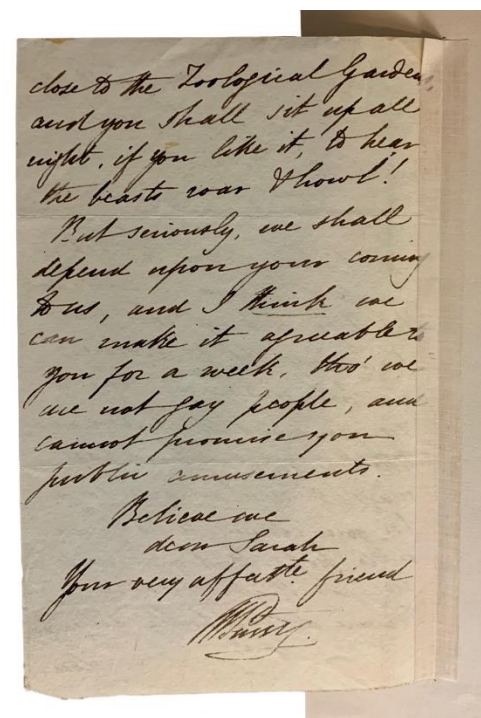 close to the Zoological Gardens,
and you shall sit up all
night, if you like it, to hear
the beasts roar & howl!
But seriously, we shall
depend upon your coming
to us, and I think we
can make it agreeable to
you for a week, tho' we
are not gay people, and
cannot promise you
public amusements.
Believe me
dear Sarah
Your very affecte friend